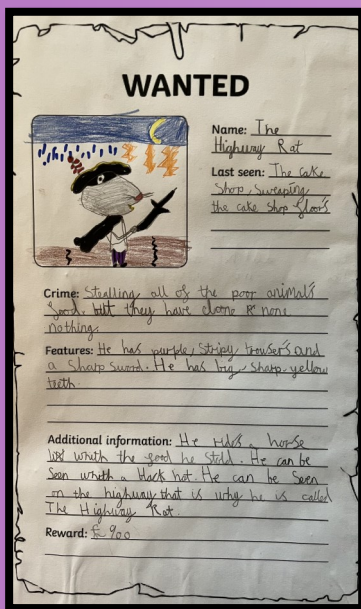 WANTED
Name: The
Highway Rat
Last seen: The cake
Shop, Sweaping
the cake shop floors
Crime: Stealling all of the poor animal's
food, but they have done & none
nothing.
Features: He has purple, Stripy trouser's and
a Sharp Sword. He has big, sharp yellow
teeth.
Additional information: He rides a horse
with the food he stold. He can be
Seen whith a black hat. He can be Seen
on the highway that is why he is called
The Highway Rat.
Reward: £900